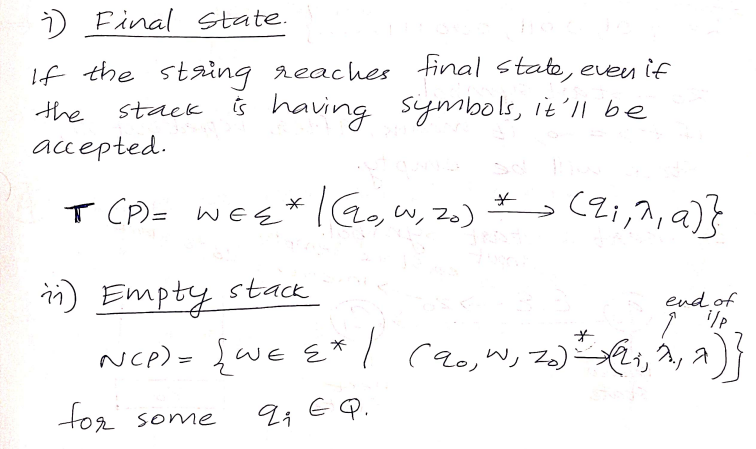 i) Final state.
If the string reaches final state, even if
the stack is having symbols, it'll be
accepted.
T (P) = w ∈ Σ* / (q₀, w, z₀) *→ (qᵢ, λ, a)}
ii) Empty stack
end of
i/p
N(P) = {w ∈ Σ* / (q₀, w, z₀) *→ (qᵢ, λ, λ)}
for some qᵢ ∈ Q.